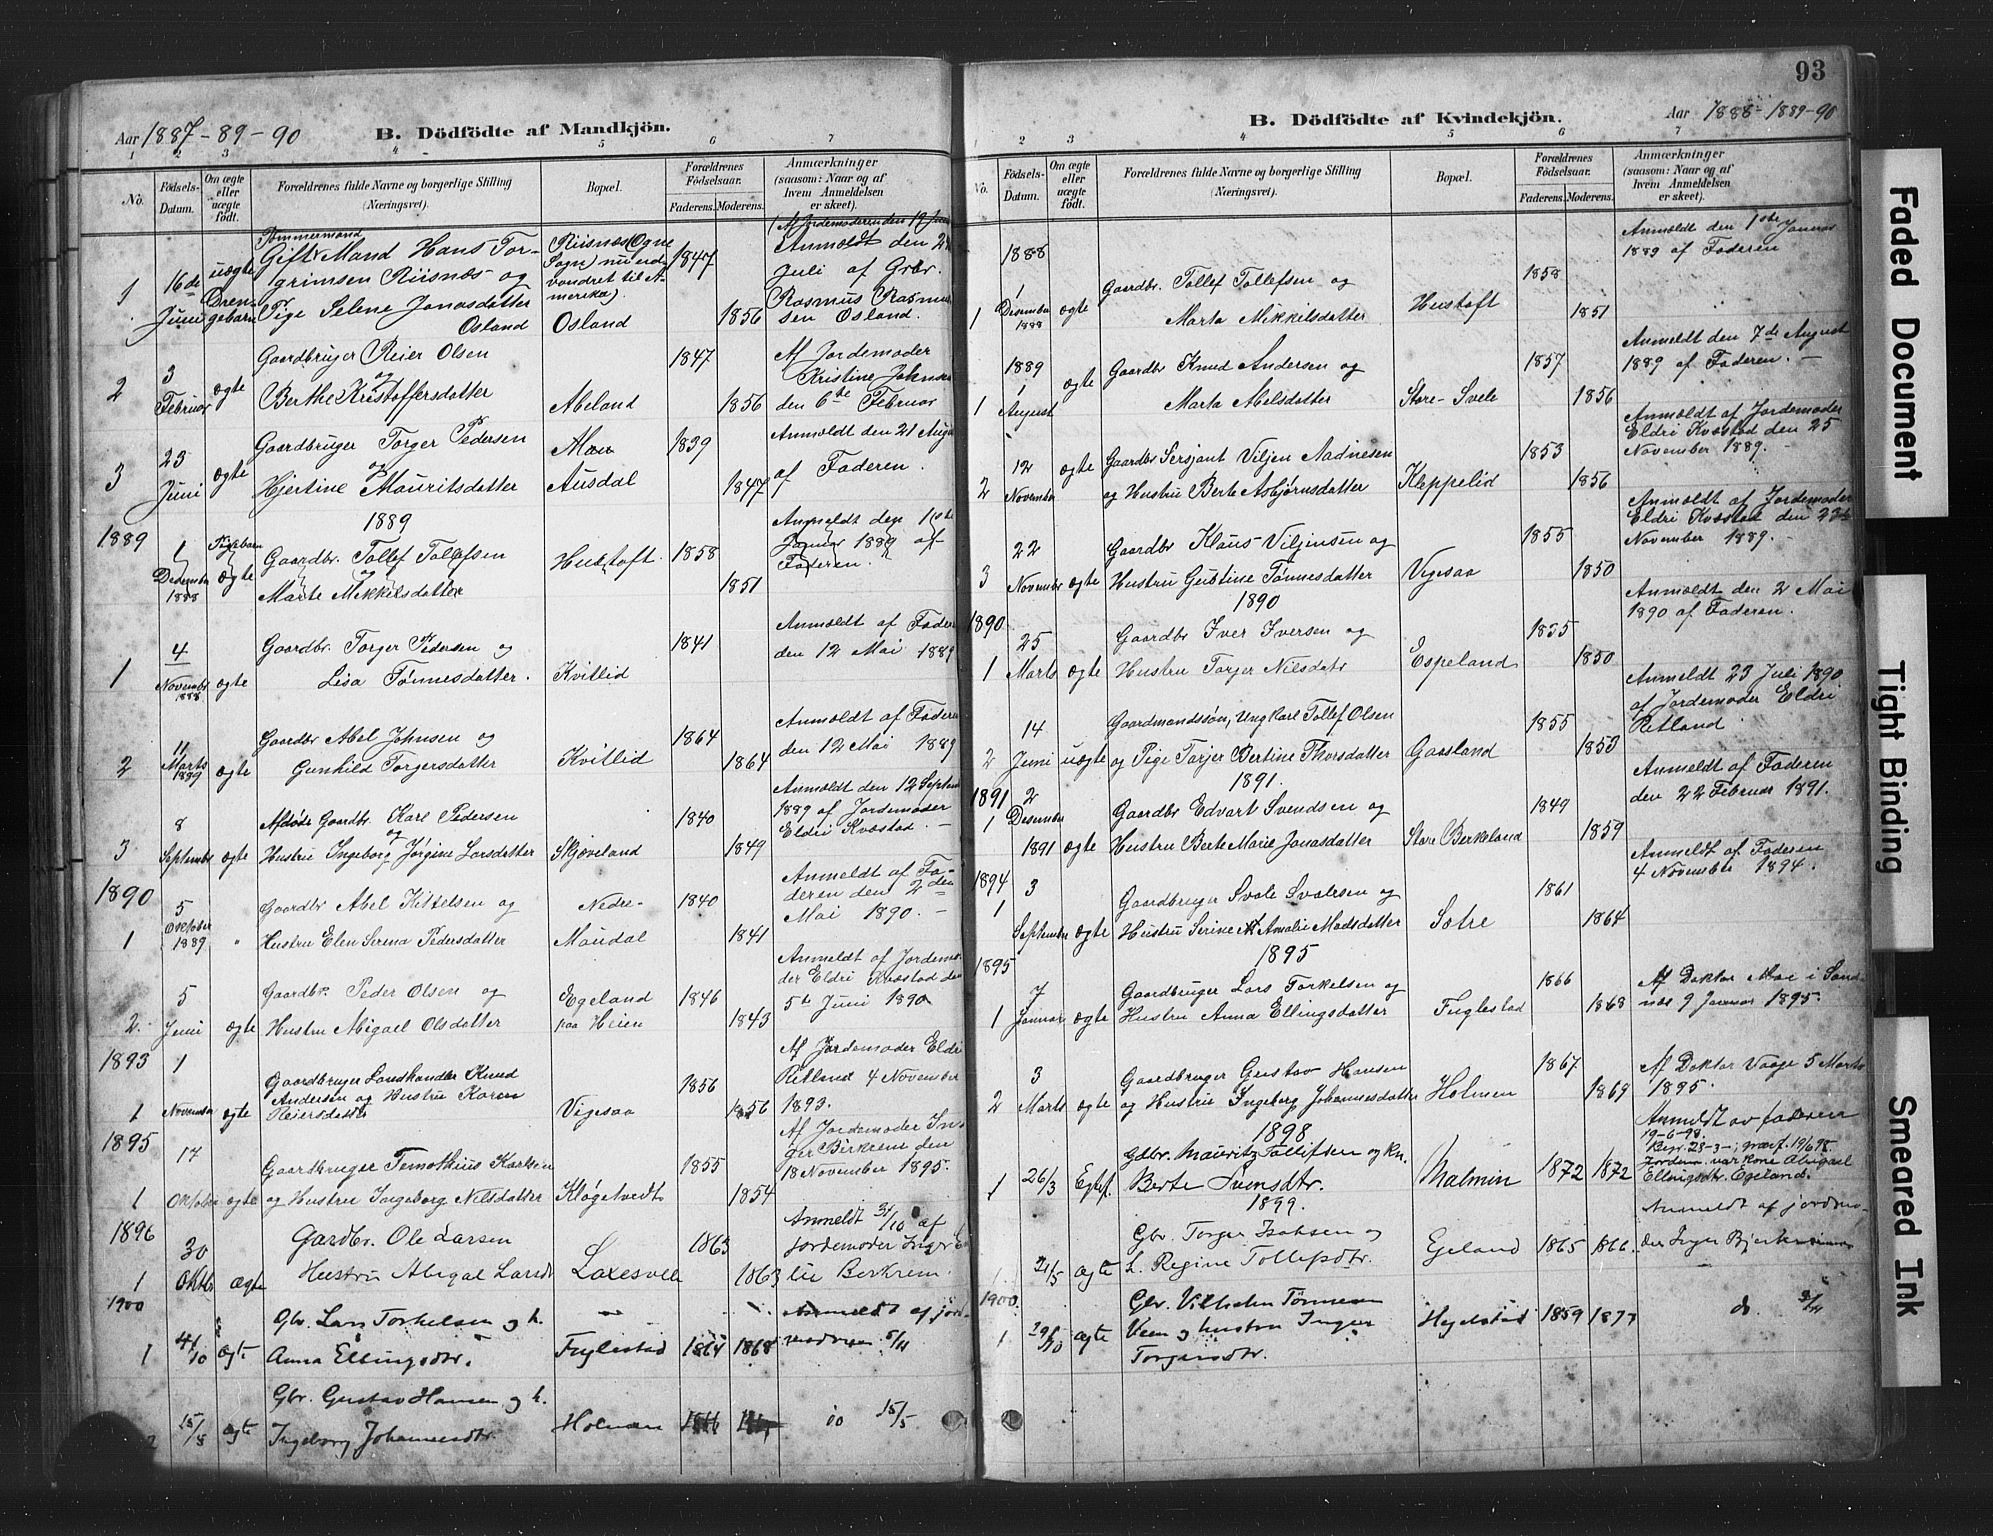 93
Aar 1887-89-90
B. Dödfödte af Mandkjön.
1 2 3 4 5 6 7
No.
Födsels-Datum.
Om ægte eller uægte födt.
Forældrenes fulde Navne og borgerlige Stilling (Næringsvei).
Bopæl.
Forældrenes Födselsaar.
Faderens. Moderens.
Anmærkninger (saasom: Naar og af hvem Anmeldelsen er skeet).
1 16de Juni uægte Drengebarn
Tømmermand
Gift Mand Hans Torgrimsen Riisnæs og
Pige Selene Jonasdatter Osland
Riisnæs (Ogne Sogn) nu udvandret til Amerika).
Osland
1847 1856
(Af Jordemoderen den 19 Juni
Anmeldt den 2
Juli af Grbr.
Rasmus Rasmussen Osland.
2 3 Februar ægte
Gaardbruger Reier Olsen
og
Berthe Kristoffersdatter
Abeland
1847 1856
Af Jordemoder
Kristine Johnsen
den 6te Februar
3 23 Juni ægte
Gaardbruger Torger Pedersen
og
Hjertine Mauritsdatter
Ausdal
1839 1847
Anmeldt den 21 Aug
af Faderen.
1889
1889
1 Desember 1888 Pigebarn ægte
Gaardbr. Tollef Tollefsen
og
Marte Mikkilsdatter
Hustoft.
1858 1851
Anmeldt den 1ste
Januar 1889 af
Faderen.
1 4 November 1888 ægte
Gaardbr. Torger Pedersen og
Lisa Tønnesdatter.
Kvitlid
1841
Anmeldt af Fader
den 12 Mai 1889
2 11 Marts 1889 ægte
Gaardbr Abel Johnsen og
Gunhild Torgersdatter
Kvitlid
1864 1864
Anmeldt af Faderen
den 12 Mai 1889
3 8 September ægte
Afdøde Gaardbr. Karl Pedersen
og
Hustru Ingeborg Jørgine Larsdatter
Skjæveland
1840 1849
Anmeldt den 12 Septem
1889 af Jordemoder
Eldri Kvæstad.
1890
1 5 Oktober 1889 "
Gaardbr Abel Kittelsen og
Hustru Elen Serena Pedersdatter
Nedre-
Maudal
1840 1841
Anmeldt af Faderen den 2den
Mai 1890.
2. 5 Juni ægte
Gaardbr. Peder Olsen og
Hustru Abigael Olsdatter
Egeland
paa Heien
1846 1843
Anmeldt af Jordemoder Eldri Kvæstad den
5te Juni 1890
1893
1 1 November ægte
Gaardbruger Landhandler Knud
Andersen og Hustru Karen
Reiersdatter
Vigesaa
1856 1856
Af Jordemoder Eldri
Ritland 4 November
1893.
1895
1 17 Oktober ægte
Gaardbruger Temothius Karlsen
og Hustru Ingeborg Nilsdatter
Kløgetvedt
1855 1854
Af Jordemoder Inger Birkrem den
18 November 1895.
1896
1 30 Oktbr ægte
Gardbr. Ole Larsen
Hustru Abigal Larsdt
Laxesvele
1863 1863
Anmeldt 31/10 af
Jordemoder Inger
Berkrem
1900
1 4/10 ægte
Gbr. Lars Torkelsen og h.
Anna Ellingsdtr.
Fuglestad
1864 1868
Anmeldt af jord
modren 5/11
2 15/8 ægte
Gbr. Gustav Hansen og h.
Ingeborg Johannesdtr.
Holmen
do 15/5
Aar 1888-1889-90
B. Dödfödte af Kvindekjön.
1 2 3 4 5 6 7
No.
Födsels-Datum.
Om ægte eller uægte födt.
Forældrenes fulde Navne og borgerlige Stilling (Næringsvei).
Bopæl.
Forældrenes Födselsaar.
Faderens. Moderens.
Anmærkninger (saasom: Naar og af hvem Anmeldelsen er skeet).
1888
1 1 Desember 1888 ægte
Gaardbr. Tollef Tollefsen og
Marta Mikkilsdatter
Hustoft
1858 1851
Anmeldt den 1ste Januar
1889 af Faderen
1889
1 1 August ægte
Gaardbr Knud Andersen og
Marta Abelsdatter
Store-Svele
1857 1856
Anmeldt den 7de August
1889 af Faderen.
2 12 November ægte
Gaardbr Sersjant Viljen Aadnesen
og Hustru Berte Asbjørnsdatter
Kleppelid
1853 1856
Anmeldt af Jordemoder
Eldri Kvæstad den 25
November 1889.
3 22 November ægte
Gaardbr Klaus Viljensen og
Hustru Gustine Tønnesdatter
Vigesaa
1855 1850
Anmeldt af Jordemoder
Eldri Kvæstad den 23de
November 1889.
1890
1890
1 25 Marts ægte
Gaardbr Iver Iversen og
Hustru Torjer Nilsdatr
Espeland
1855 1850
Anmeldt den 2 Mai
1890 af Faderen.
2 14 Juni uægte
Gaardmandssøn, Ungkarl Tollef Olsen
og Pige Torjer Bertine Thorsdatter
Gaasland
1855 1853
Anmeldt 23 Juli 1890
af Jordemoder Eldri
Ritland
1891.
1891
1 2 Desember 1891 ægte
Gaardbr Edvart Svendsen og
Hustru Berte Marie Jonasdatter
Store Berkeland
1849 1859
Anmeldt af Faderen
den 22 Februar 1891.
1894
1 3 September ægte
Gaardbruger Svale Svalesen og
Hustru Serine Amalie Madsdatter
Sotre
1861 1864
Anmeldt af Faderen
4 November 1894.
1895
1895
1 7 Januar ægte
Gaardbruger Lars Torkelsen og
Hustru Anna Ellingsdatter
Fuglestad
1866 1868
Af Doktor Moe i Sandnæs 9 Januar 1895.
2 3 Marts ægte
Gaardbruger Gustav Hansen
og Hustru Ingeborg Johannesdatter
Holmen
1867 1869
Af Doktor Vaage 5 Marts
1895.
1898
1 26/3 Egtef.
Gdbr. Mauritz Tollifsen og kn.
Berte Svensdtr.
Malmin
1872 1872
Anmeldt av faderen
19-6-98.
Jordem. var kone Abigael
Ellingsdtr. Egeland.
1899.
1 21/5 ægte
Gbr. Torger Isaksen og
h. Regine Tollefsdtr.
Egeland
1865 1866
Anmeldt af jordmoder Inger Bjerkreim
1900.
1 29/10 ægte
Gbr. Vilhelm Tønnesen
Veen og hustru Inger
Torgersdtr.
Hegelstad
1859 1877
do. 3/11
Faded Document
Tight Binding
Smeared Ink